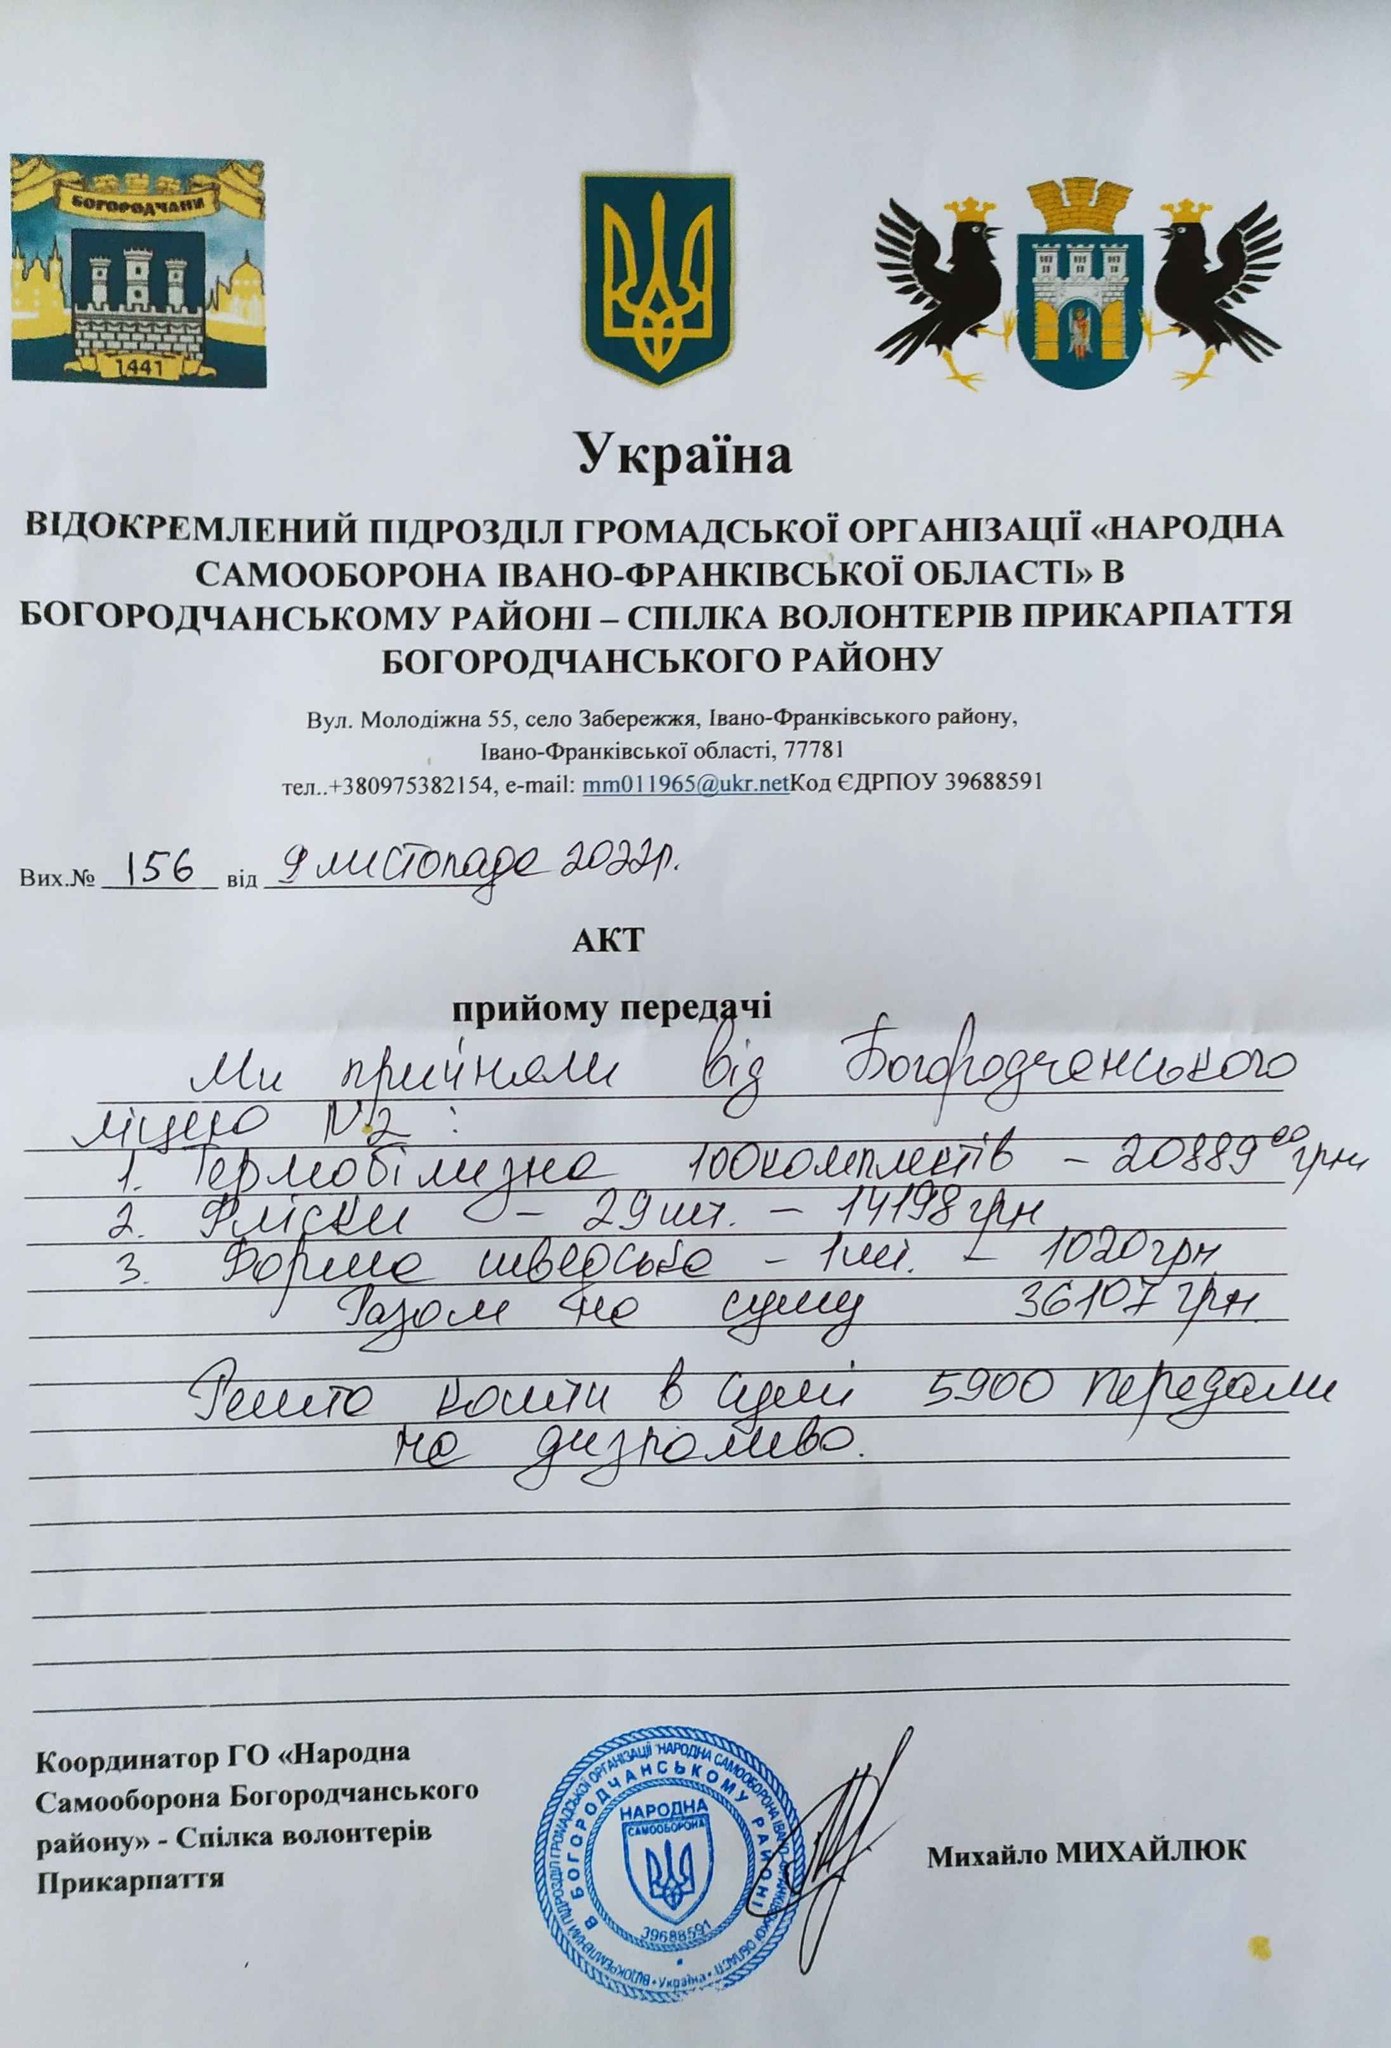 БОГОРОДЧАНИ
1441
Україна
ВІДОКРЕМЛЕНИЙ ПІДРОЗДІЛ ГРОМАДСЬКОЇ ОРГАНІЗАЦІЇ «НАРОДНА
САМООБОРОНА ІВАНО-ФРАНКІВСЬКОЇ ОБЛАСТІ» В
БОГОРОДЧАНСЬКОМУ РАЙОНІ – СПІЛКА ВОЛОНТЕРІВ ПРИКАРПАТТЯ
БОГОРОДЧАНСЬКОГО РАЙОНУ
Вул. Молодіжна 55, село Забережжя, Івано-Франківського району,
Івано-Франківської області, 77781
тел..+380975382154, e-mail: mm011965@ukr.netКод ЄДРПОУ 39688591
Вих.№ 156 від 9 листопада 2022р.
АКТ
прийому передачі
Ми прийняли від Богородчанського
ліцею №2 :
1. Термобілизна 100комплектів – 20889 00 грн
2. Фліски – 29шт. – 14198грн
3. Форма шведська – 1шт. – 1020грн
Разом на суму 36107грн.
Решта кошти в сумі 5900 передали
на дизпаливо.
Координатор ГО «Народна
Самооборона Богородчанського
району» - Спілка волонтерів
Прикарпаття
ВІДОКРЕМЛЕНИЙ ПІДРОЗДІЛ ГРОМАДСЬКОЇ ОРГАНІЗАЦІЇ "НАРОДНА САМООБОРОНА ІВАНО-ФРАНКІВСЬКОЇ ОБЛАСТІ • Україна •
В БОГОРОДЧАНСЬКОМУ РАЙОНІ
НАРОДНА
САМООБОРОНА
39688591
Михайло МИХАЙЛЮК